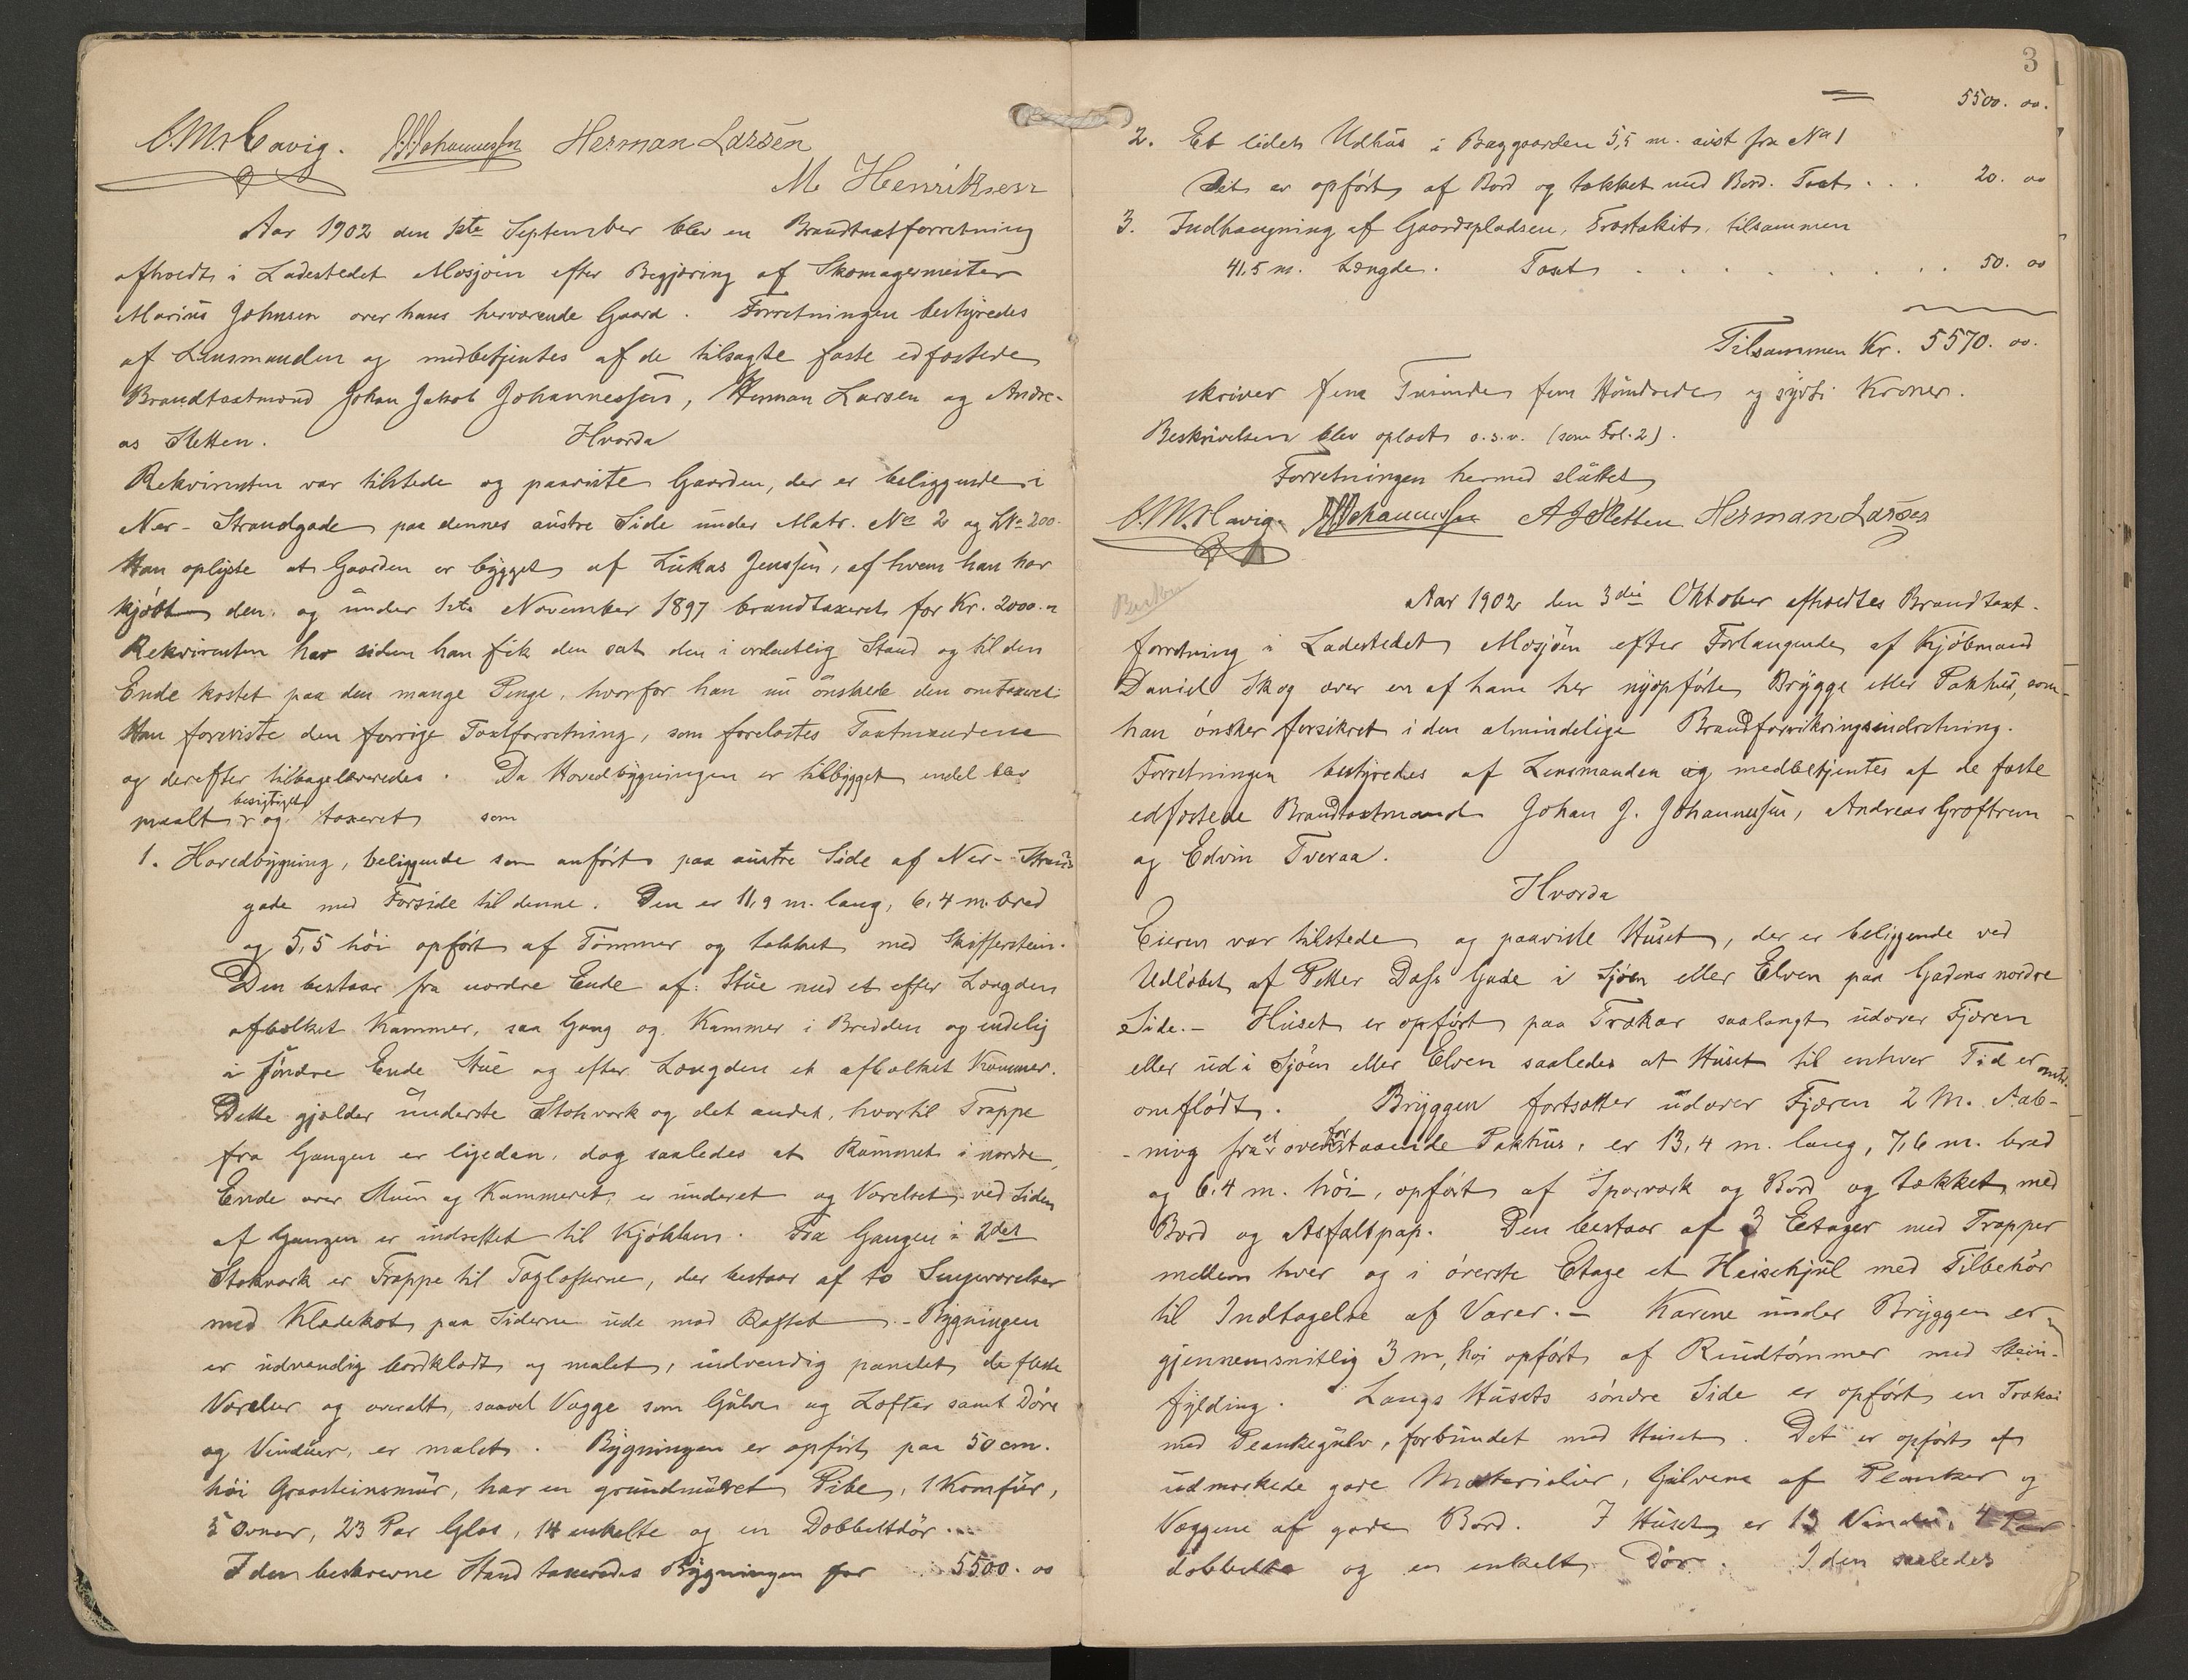 O.M. Havig. J.J. Johannessen Herman Larsen
M. Henriksen
Aar 1902 den 1ste September blev en Brandtaxtforretning
afholdt i Ladestedet Mosjøen efter Begjæring af Skomagermester
Marius Johnsen over hans herværende Gaard. Forretningen bestyredes
af Lensmanden og medbetjentes af de tilsagte faste edfæstede
Brandtaxtmænd Johan Jakob Johannessen, Herman Larsen og Andre-
as Sletten. Hvorda
Rekvirenten var tilstede og paaviste Gaarden, der er beliggende i
Ner-Strandgade paa dennes austre Side under Matr. No 2 og LNo 200.
Han oplyste at Gaarden er bygget af Lukas Jenssen, af hvem han har
kjøbt den, og under 1ste November 1897 brandtaxeret for Kr. 2000.
Rekvirenten har siden han fik den sat den i ordentlig Stand og til den
Ende kostet paa den mange Penge, hvorfor han nu ønskede den omtaxeret.
Han foreviste den forrige Taxtforretning, som forelæstes Taxtmændene
og derefter tilbageleveredes. Da Hovedbygningen er tilbygget endel blev
maalt, besigtiget og taxeret som
1. Hovedbygning, beliggende som anført paa austre Side af Ner-Strand-
gade med Forside til denne. Den er 11,9 m. lang, 6,4 m. bred
og 5,5 høi opført af Tømmer og tækket med Skifferstein.
Den bestaar fra nordre Ende af: Stue med et efter Længden
afbolket Kammer, saa Gang og Kammer i Bredden og endelig
i søndre Ende Stue og efter Længden et afbolket Kammer.
Dette gjælder underste Stokværk og det andet, hvortil Trappe
fra Gangen er ligedan, dog saaledes at Rummet i nordre
Ende over Stuen og Kammeret er underet og Værelset ved Siden
af Gangen er indrettet til Kjøkken. Fra Gangen i 2det
Stokværk er Trappe til Tagloftene, der bestaar af to Sengeværelser
med Klædekot paa Siderne ude mod Raftet. - Bygningen
er udvendig bordklædt og malet, indvendig panelet de fleste
Værelser og overalt, saavel Vægge som Gulve og Lofter samt Døre
og Vinduer, er malet. Bygningen er opført paa 50 cm.
høi Graasteinsmur, har en grundmuret Pibe, 1 Komfur,
5 Ovner, 23 Par Glas, 14 enkelte og en Dobbeltdør ...
I den beskrevne Stand taxeredes Bygningen for 5500. oo
3
5500. oo.
2. Et lidet Udhus i Baggaarden 5,5 m. aust fra No 1
Det er opført af Bord og tækket med Bord. Taxt . . . 20. oo
3. Indhægning af Gaardspladsen, Træstakit, tilsammen
41,5 m. Længde. Taxt . . . . . . . . . 50. oo
Tilsammen Kr. 5570. oo.
skriver fem Tusinde fem Hundrede og sytti Kroner.
Beskrivelsen blev oplæst o.s.v. (som Fol. 2).
Forretningen hermed sluttet
O.M. Havig. J.J. Johannessen A J Sletten Herman Larsen
Aar 1902 den 3die Oktober afholdtes Brandtaxt-
forretning i Ladestedet Mosjøen efter Forlangende af Kjøbmand
Daniel Skog over en af ham her nyopført Brygge eller Pakhus, som
han ønsker forsikret i den almindelige Brandforsikringsindretning.
Forretningen bestyredes af Lensmanden og medbetjentes af de faste
edfæstede Brandtaxtmænd Johan J. Johannessen, Andreas Groftrem
og Edvin Tveraa.
Hvorda
Eieren var tilstede og paaviste Huset, der er beliggende ved
Udløbet af Petter Dass Gade i Sjøen eller Elven paa Gadens nordre
Side. - Huset er opført paa Trækar saalangt udover Fjæren
eller ud i Sjøen eller Elven saaledes at Huset til enhver Tid er
omflødt. Bryggen fortsætter udover Fjæren 2 M. Aab-
ning fra et ovenforstaaende Pakhus, er 13,4 m. lang, 7,6 m. bred
og 6,4 m. høi, opført af Sparværk og Bord og tækket med
Bord og Asfaltpap. Den bestaar af 3 Etager med Trapper
mellem hver og i øverste Etage et Heisehjul med Tilbehør
til Indtagelse af Varer. - Karene under Bryggen er
gjennemsnitlig 3 m, høi opført af Rundtømmer med Stein-
fylding. Langs Husets søndre Side er opført en Trækai
med Plankegulv, forbundet med Huset. Det er opført af
udmærkede gode Materialier, Gulvene af Planker og
Væggene af gode Bord. I Huset er 13 Vindu, 4 Par
dobbelte og en enkelt Dør. I den saaledes